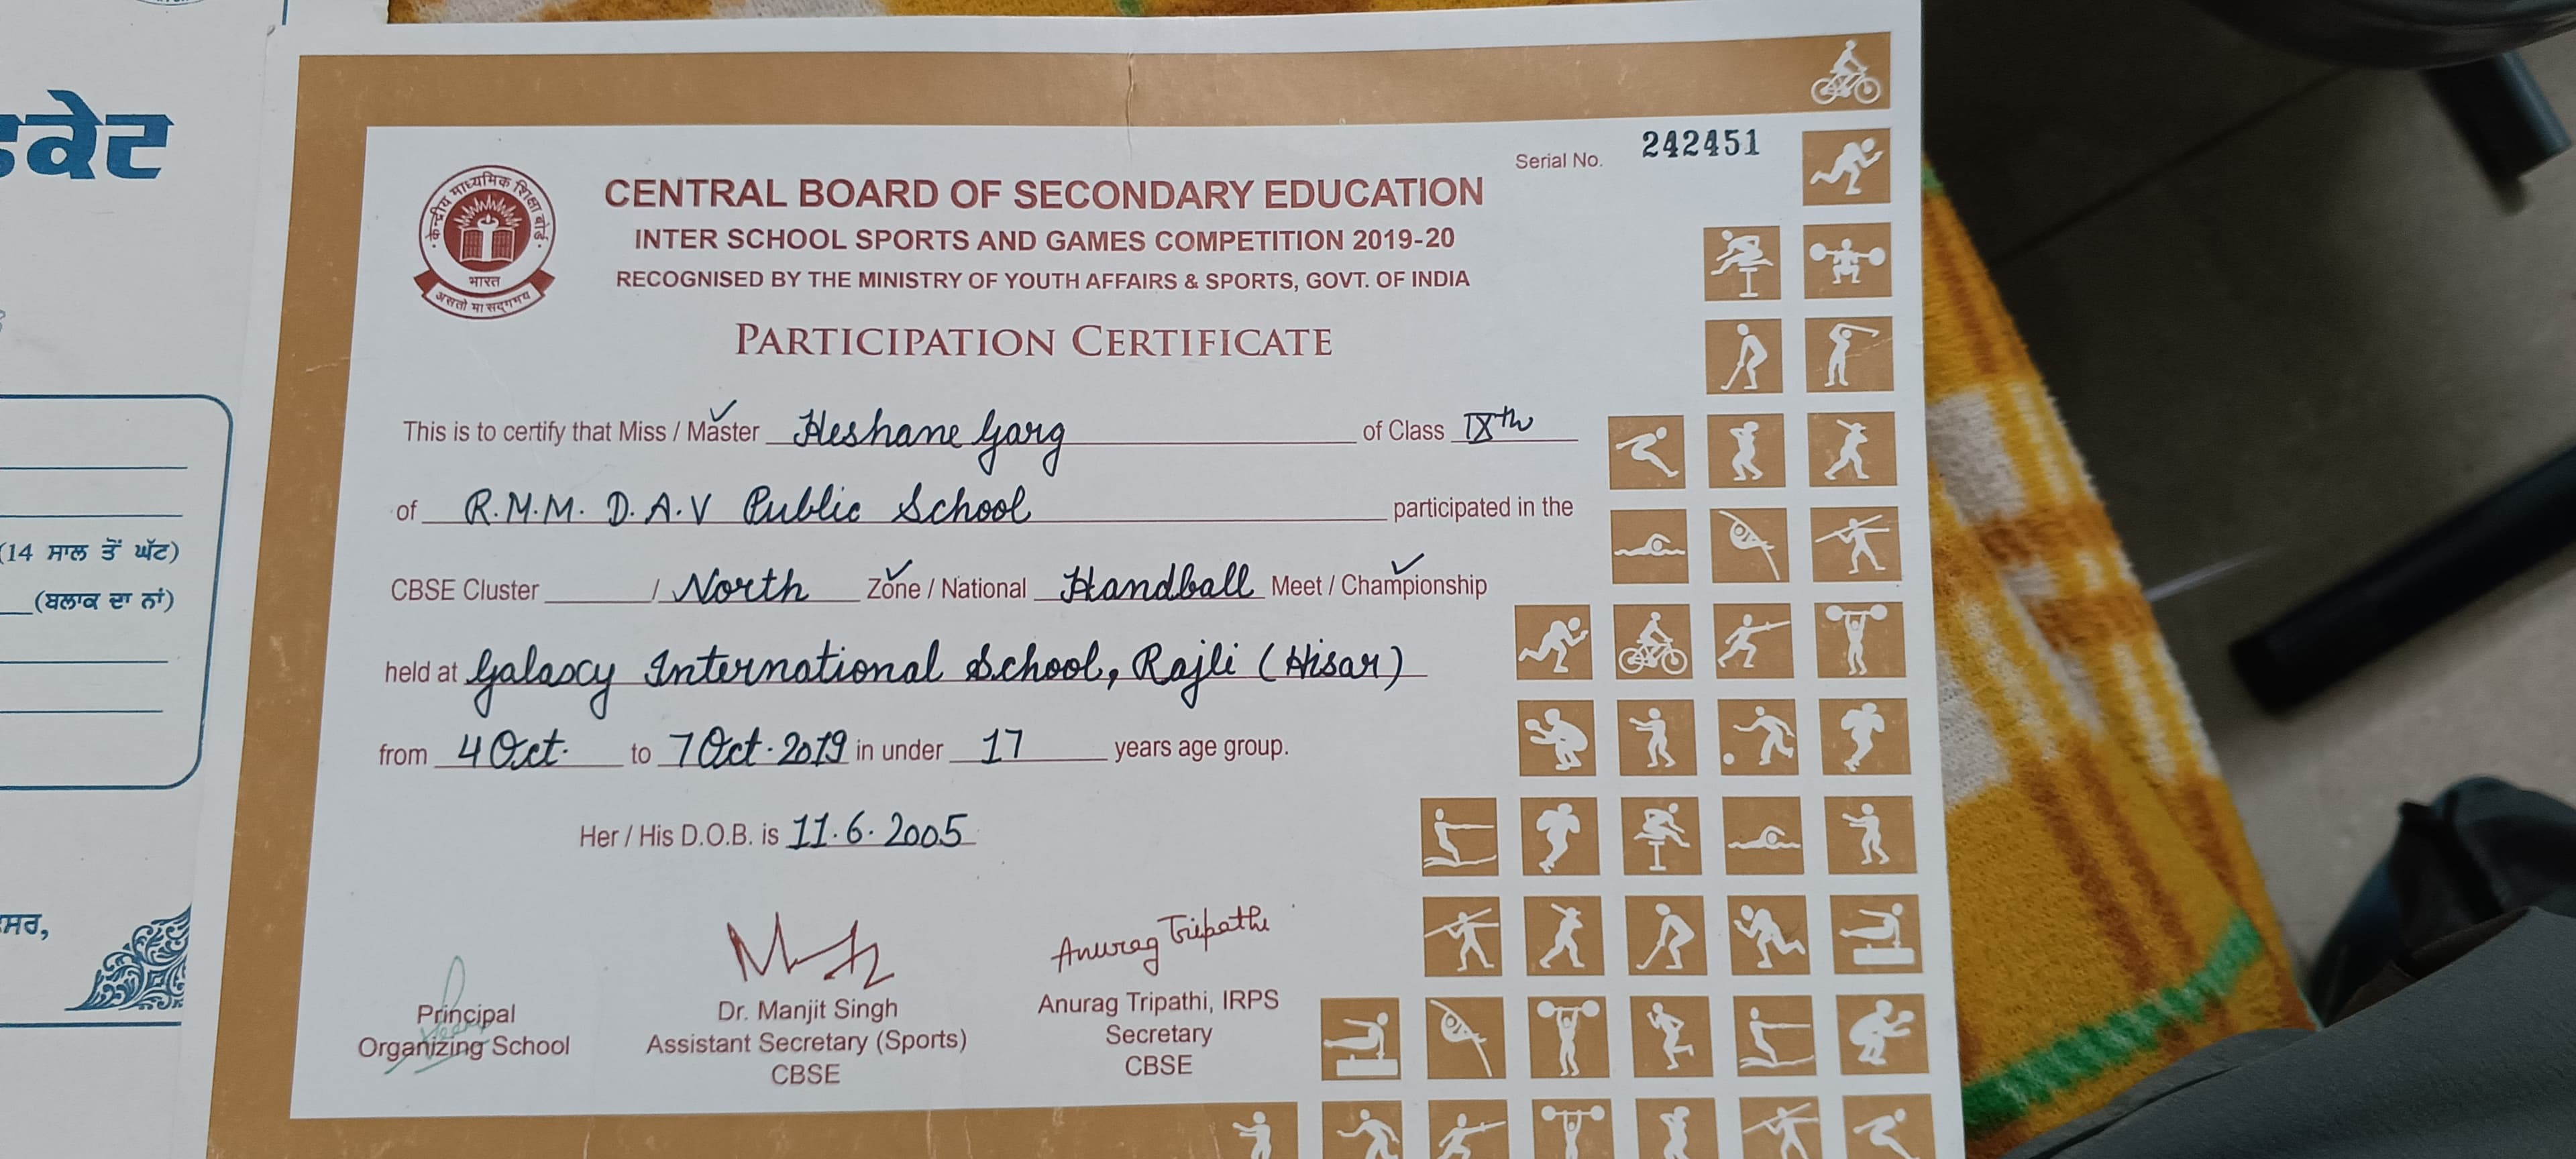 ਫਿਕੇਟ
(14 ਸਾਲ ਤੋਂ ਘੱਟ)
(ਬਲਾਕ ਦਾ ਨਾਂ)
ਸਰ,
Serial No. 242451
केन्द्रीय माध्यमिक शिक्षा बोर्ड
भारत
असतो मा सद्गमय
CENTRAL BOARD OF SECONDARY EDUCATION
INTER SCHOOL SPORTS AND GAMES COMPETITION 2019-20
RECOGNISED BY THE MINISTRY OF YOUTH AFFAIRS & SPORTS, GOVT. OF INDIA
PARTICIPATION CERTIFICATE
This is to certify that Miss / Master Heshane Garg of Class IXth
of R.M.M. D.A.V Public School participated in the
CBSE Cluster / North Zone / National Handball Meet / Championship
held at Galaxy International School, Rajli (Hisar)
from 4 Oct. to 7 Oct. 2019 in under 17 years age group.
Her / His D.O.B. is 11.6.2005
Anurag Tripathi
Principal
Organizing School
Dr. Manjit Singh
Assistant Secretary (Sports)
CBSE
Anurag Tripathi, IRPS
Secretary
CBSE